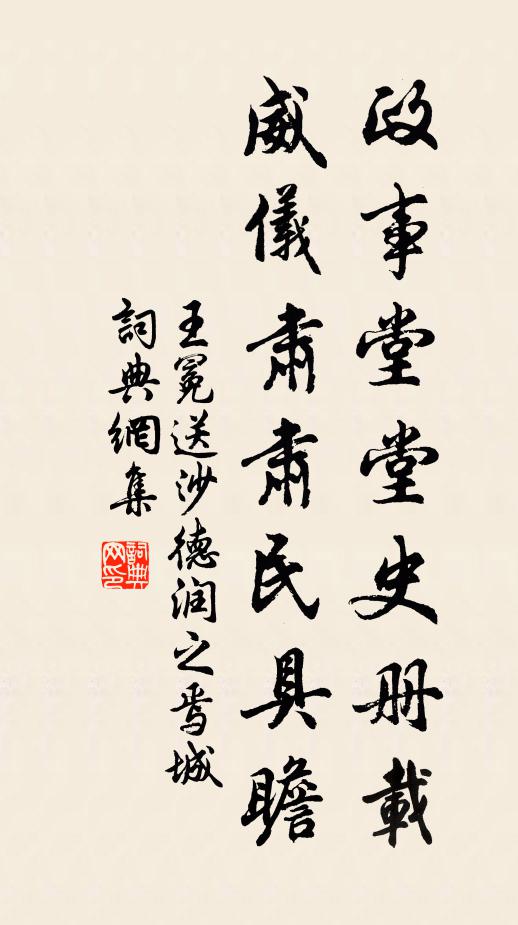 政事堂堂史册載
威儀肅肅民具瞻
王冕送沙德润之焉城
詞典網集
詞典网印